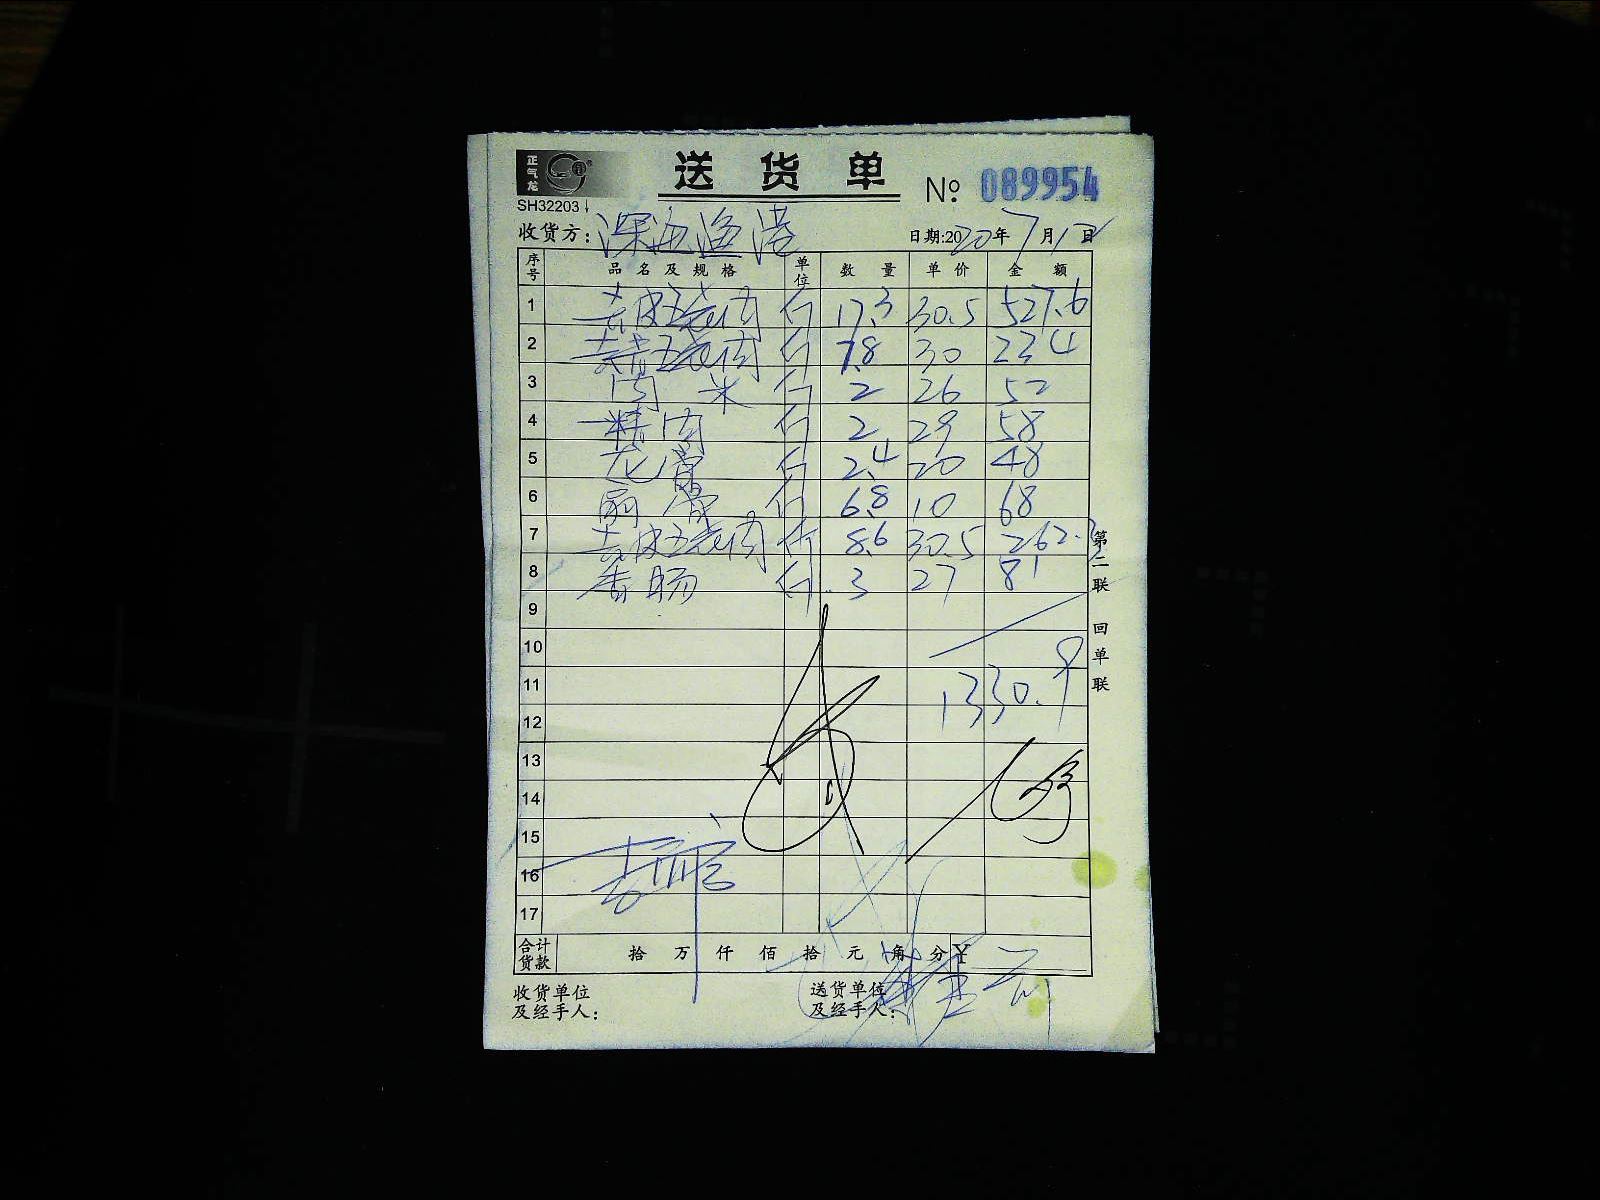 正气龙
送货单
SH32203
№ 089954
收货方: 深海渔港 日期:2020年7月12日
序号 品名及规格 单位 数量 单价 金额
1 去皮五花肉 斤 17.3 30.5 527.6
2 五花肉 斤 7.8 30 234
3 肉米 斤 2 26 52
4 精肉 斤 2 29 58
5 龙骨 斤 2.4 20 48
6 扇骨 斤 6.8 10 68
7 去皮五花肉 斤 8.6 30.5 262.3
8 香肠 斤 3 27 81
9
10
11 1330.9
12
13
14
15
16
17
合计货款 拾万仟佰拾元角分 ¥
收货单位及经手人:
送货单位及经手人:
第二联 回单联